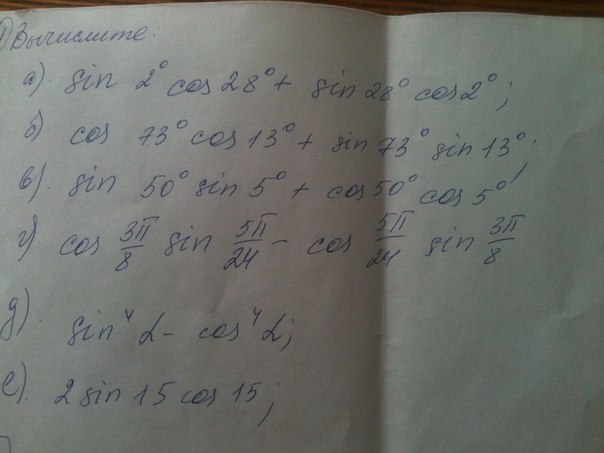 1) Вычислите:
а). sin 2° cos 28° + sin 28° cos 2°;
б). cos 73° cos 13° + sin 73° sin 13°;
в). sin 50° sin 5° + cos 50° cos 5°
г). cos 3π/8 sin 5π/24 - cos 5π/24 sin 3π/8
д). sin⁴ α - cos⁴ α;
е). 2 sin 15 cos 15;